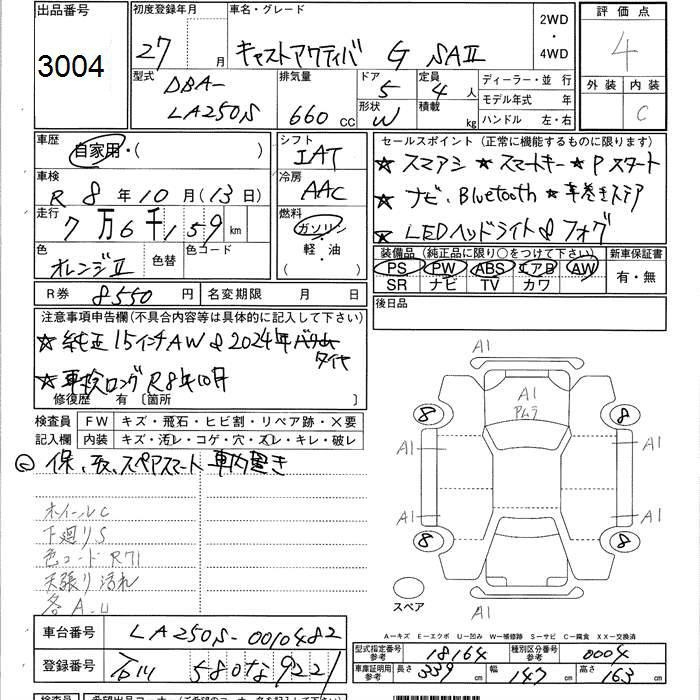 出品番号 3004
初度登録年月 27年 月
車名・グレード キャストアクティバ G SAⅡ
2WD・4WD
評価点 4
外装 内装 C
型式 DBA-LA250S
排気量 660cc
ドア 5
形状 W
定員 4人
積載 kg
ディーラー・並行
モデル年式 年
ハンドル 左・右
車歴 自家用・( )
シフト IAT
車検 R 8年10月(13日)
冷房 AAC
走行 7万6千159km
燃料 ガソリン・軽・油・( )
色 オレンジⅡ 色替 色コード
R券 8550円 名変期限 月 日
セールスポイント (正常に機能するものに限ります)
★スマアシ ★スマートキー ★Pスタート
★ナビ、Bluetooth ★革巻きステア
★LEDヘッドライト&フォグ
装備品 (純正品に限り○をつけて下さい)
PS PW ABS エアB AW
SR ナビ TV カワ
新車保証書 有・無
後日品
注意事項申告欄(不具合内容等は具体的に記入して下さい)
★純正15インチAW&2024年 タイヤ
★車検ロングR8年10月
修復歴 有 〔箇所 〕
検査員記入欄
FW キズ・飛石・ヒビ割・リペア跡・X要
内装 キズ・汚レ・コゲ・穴・スレ・キレ・破レ
保、取、スペアスマート 車内置き
ホイールC
下廻りS
色コードR71
天張り汚れ
各A.U
A1
A1
アムラ
8 8
A1 A1
A1 A1
8 8
スペア
A1
A-キズ E-エクボ U-凹み W-補修跡 S-サビ C-腐食 XX-交換済
車台番号 LA250S-0010482
登録番号 石川 580 な 9221
型式指定番号 参考 18164
種別区分番号 参考 0004
車庫証明用 参考 長さ 339cm 幅 147cm 高さ 163cm